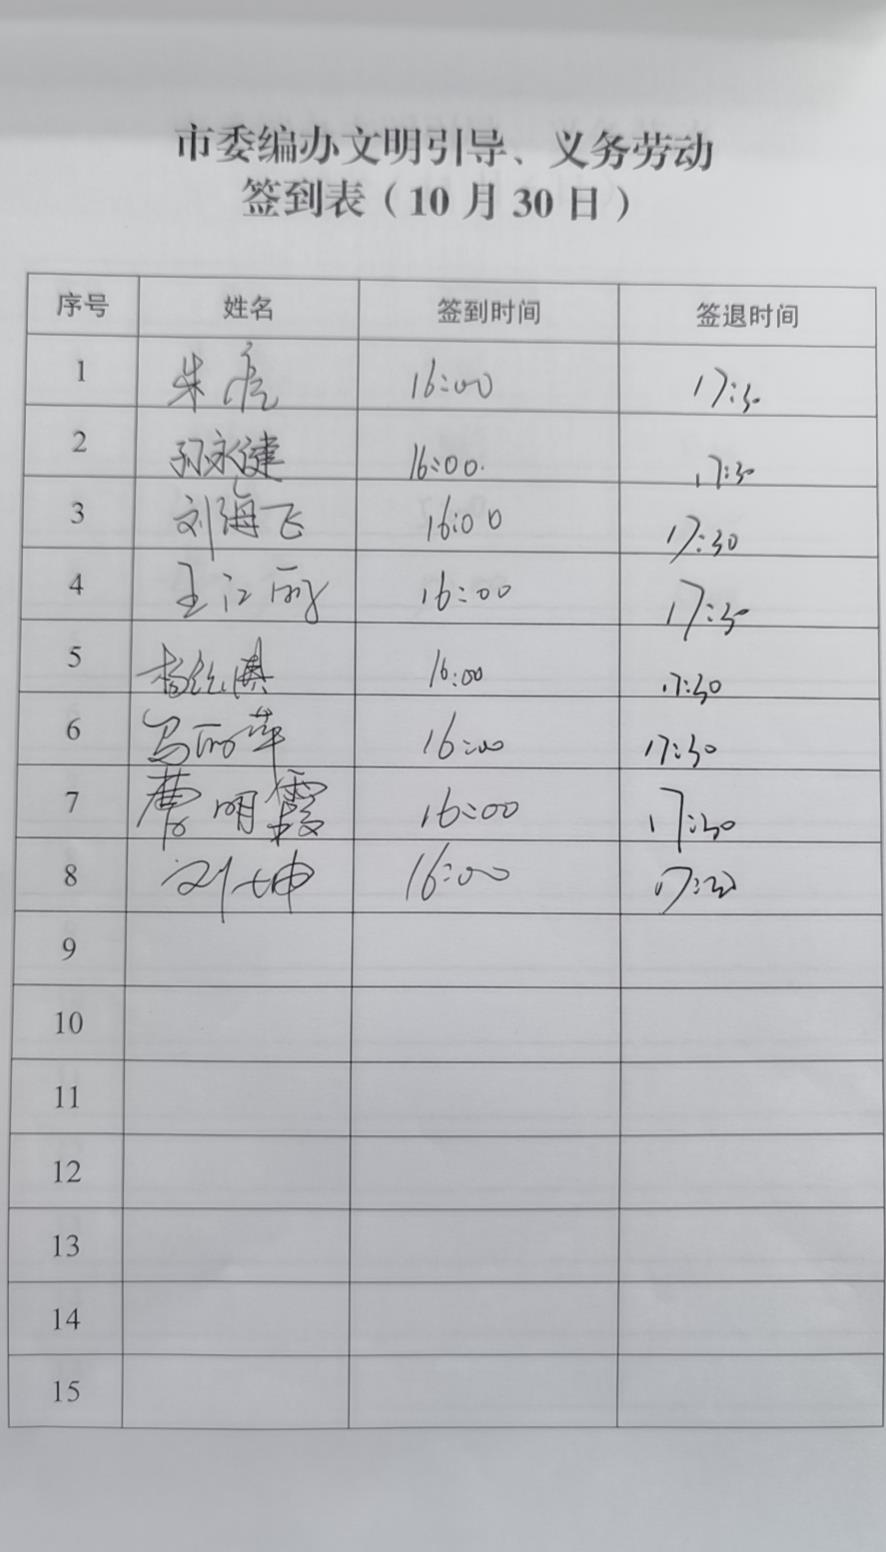 市委编办文明引导、义务劳动
签到表（10月30日）
序号 姓名 签到时间 签退时间
1 朱 16:00 17:30
2 孙永健 16:00. 17:30
3 刘海飞 16:00 17:30
4 王江丽 16:00 17:30
5 杨 16:00 17:30
6 马丽萍 16:00 17:30
7 曹明霞 16:00 17:30
8 刘坤 16:00 17:30
9
10
11
12
13
14
15